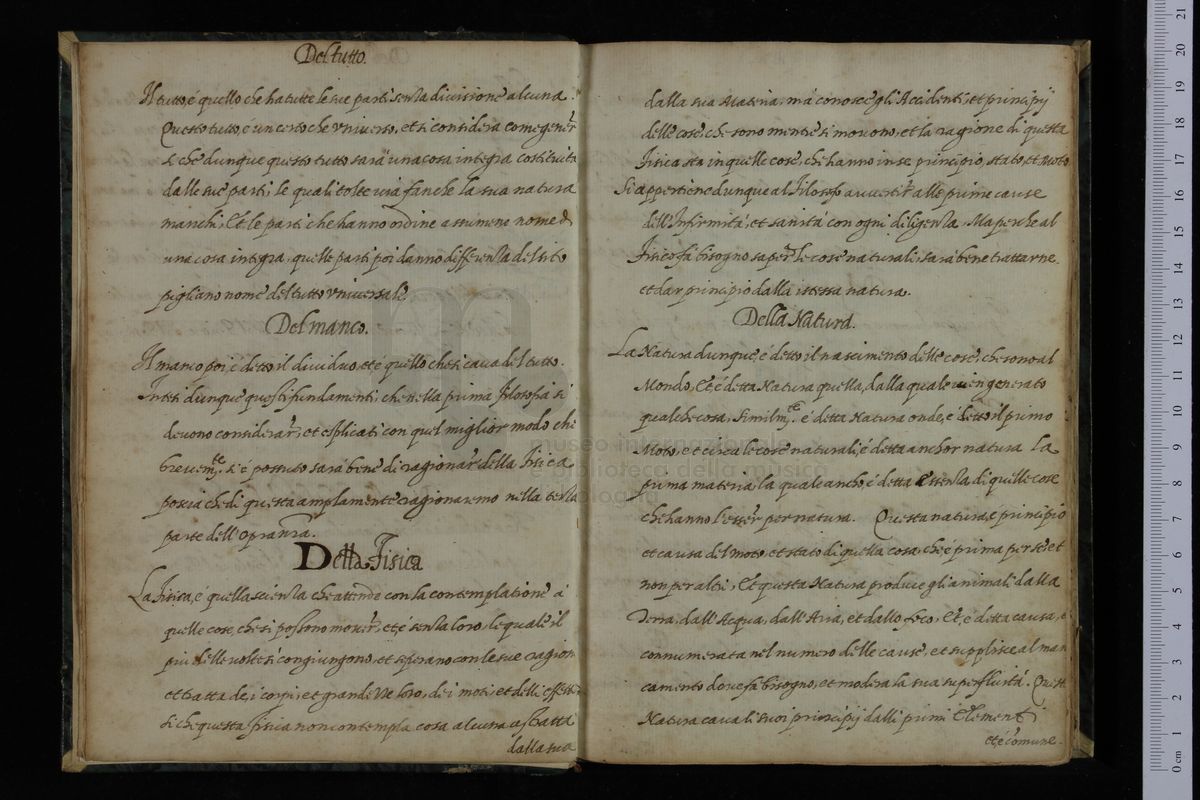 Del tutto.
Il tutto, é quello che ha tutte le sue parti senza divisione alcuna.
Questo tutto, é un certo che universo, et si considera come genere
si che dunque questo tutto sará una cosa integra costituita
dalle sue parti, le quali tolte via fanche la sua natura
manchi, Et le parti che hanno ordine assumeno nome d
una cosa integra, quelle parti poi danno differenza del sito
pigliano nome del tutto Vniversale.
Del manco.
Il manco poi, é detto il dividuo, et é quello che si cava del tutto.
Intesi dunque questi fundamenti, che nella prima filosofia si
devono considerar, et esplicati con quel miglior modo che
brevem.te si é possuto sará bene di ragionar della Fisica
poscia che di questa amplamente ragionaremo nella terza
parte dell'opra nra.
Della Fisica
La Fisica, é quella scienza che attende con la contemplatione á
quelle cose, che si possono mover, et é senza loro, le quale il
piu delle volte si congiungono, et si perano con le sue ragion
et tratta de i corpi, et grandezze loro, de i moti, et delli effetti
si che questa fisica non contempla cosa alcuna astratta
dalla sua
dalla sua Materia, má conosce gli Accidenti, et principij
delle cose, che sono mentre si movono, et la ragione di questa
fisica sta in quelle cose, che hanno in se principio, stato, et Moto
Si appertiene dunque al Filosofo avvertir alle prime cause
dell'Infirmitá, et sanitá con ogni diligenza. Ma perche al
Fisico fá bisogno saper le cose naturali, sará bene trattarne
et dar principio dalla istessa natura.
Della Natura.
La Natura dunque, é detto il nascimento delle cose, che sono al
Mondo, Et, é detta Natura quella, dalla quale vien generato
qualche cosa, Similm.te é detta Natura onde, é detto il primo
Moto, et circa le cose naturali, é detta anchor natura La
prima materia la quale anch, é detta Essenza di quelle cose
che hanno l'esser per natura. Questa natura, é principio
et causa del moto, et stato di quella cosa, che é prima per se, et
non per altri, Et questa Natura produce gli animali dalla
Terra, dall'Acqua, dall'Aria, et dallo foco. Et, é detta causa, é
connumerata nel numero delle cause, et supplisce al man
camento dove fa bisogno, et modera la sua superfluitá. Questa
Natura cava li suoi principij dalli primi Elementi
et é comune.
museo internazionale
e biblioteca della musica
di bologna
0 cm 1 2 3 4 5 6 7 8 9 10 11 12 13 14 15 16 17 18 19 20 21